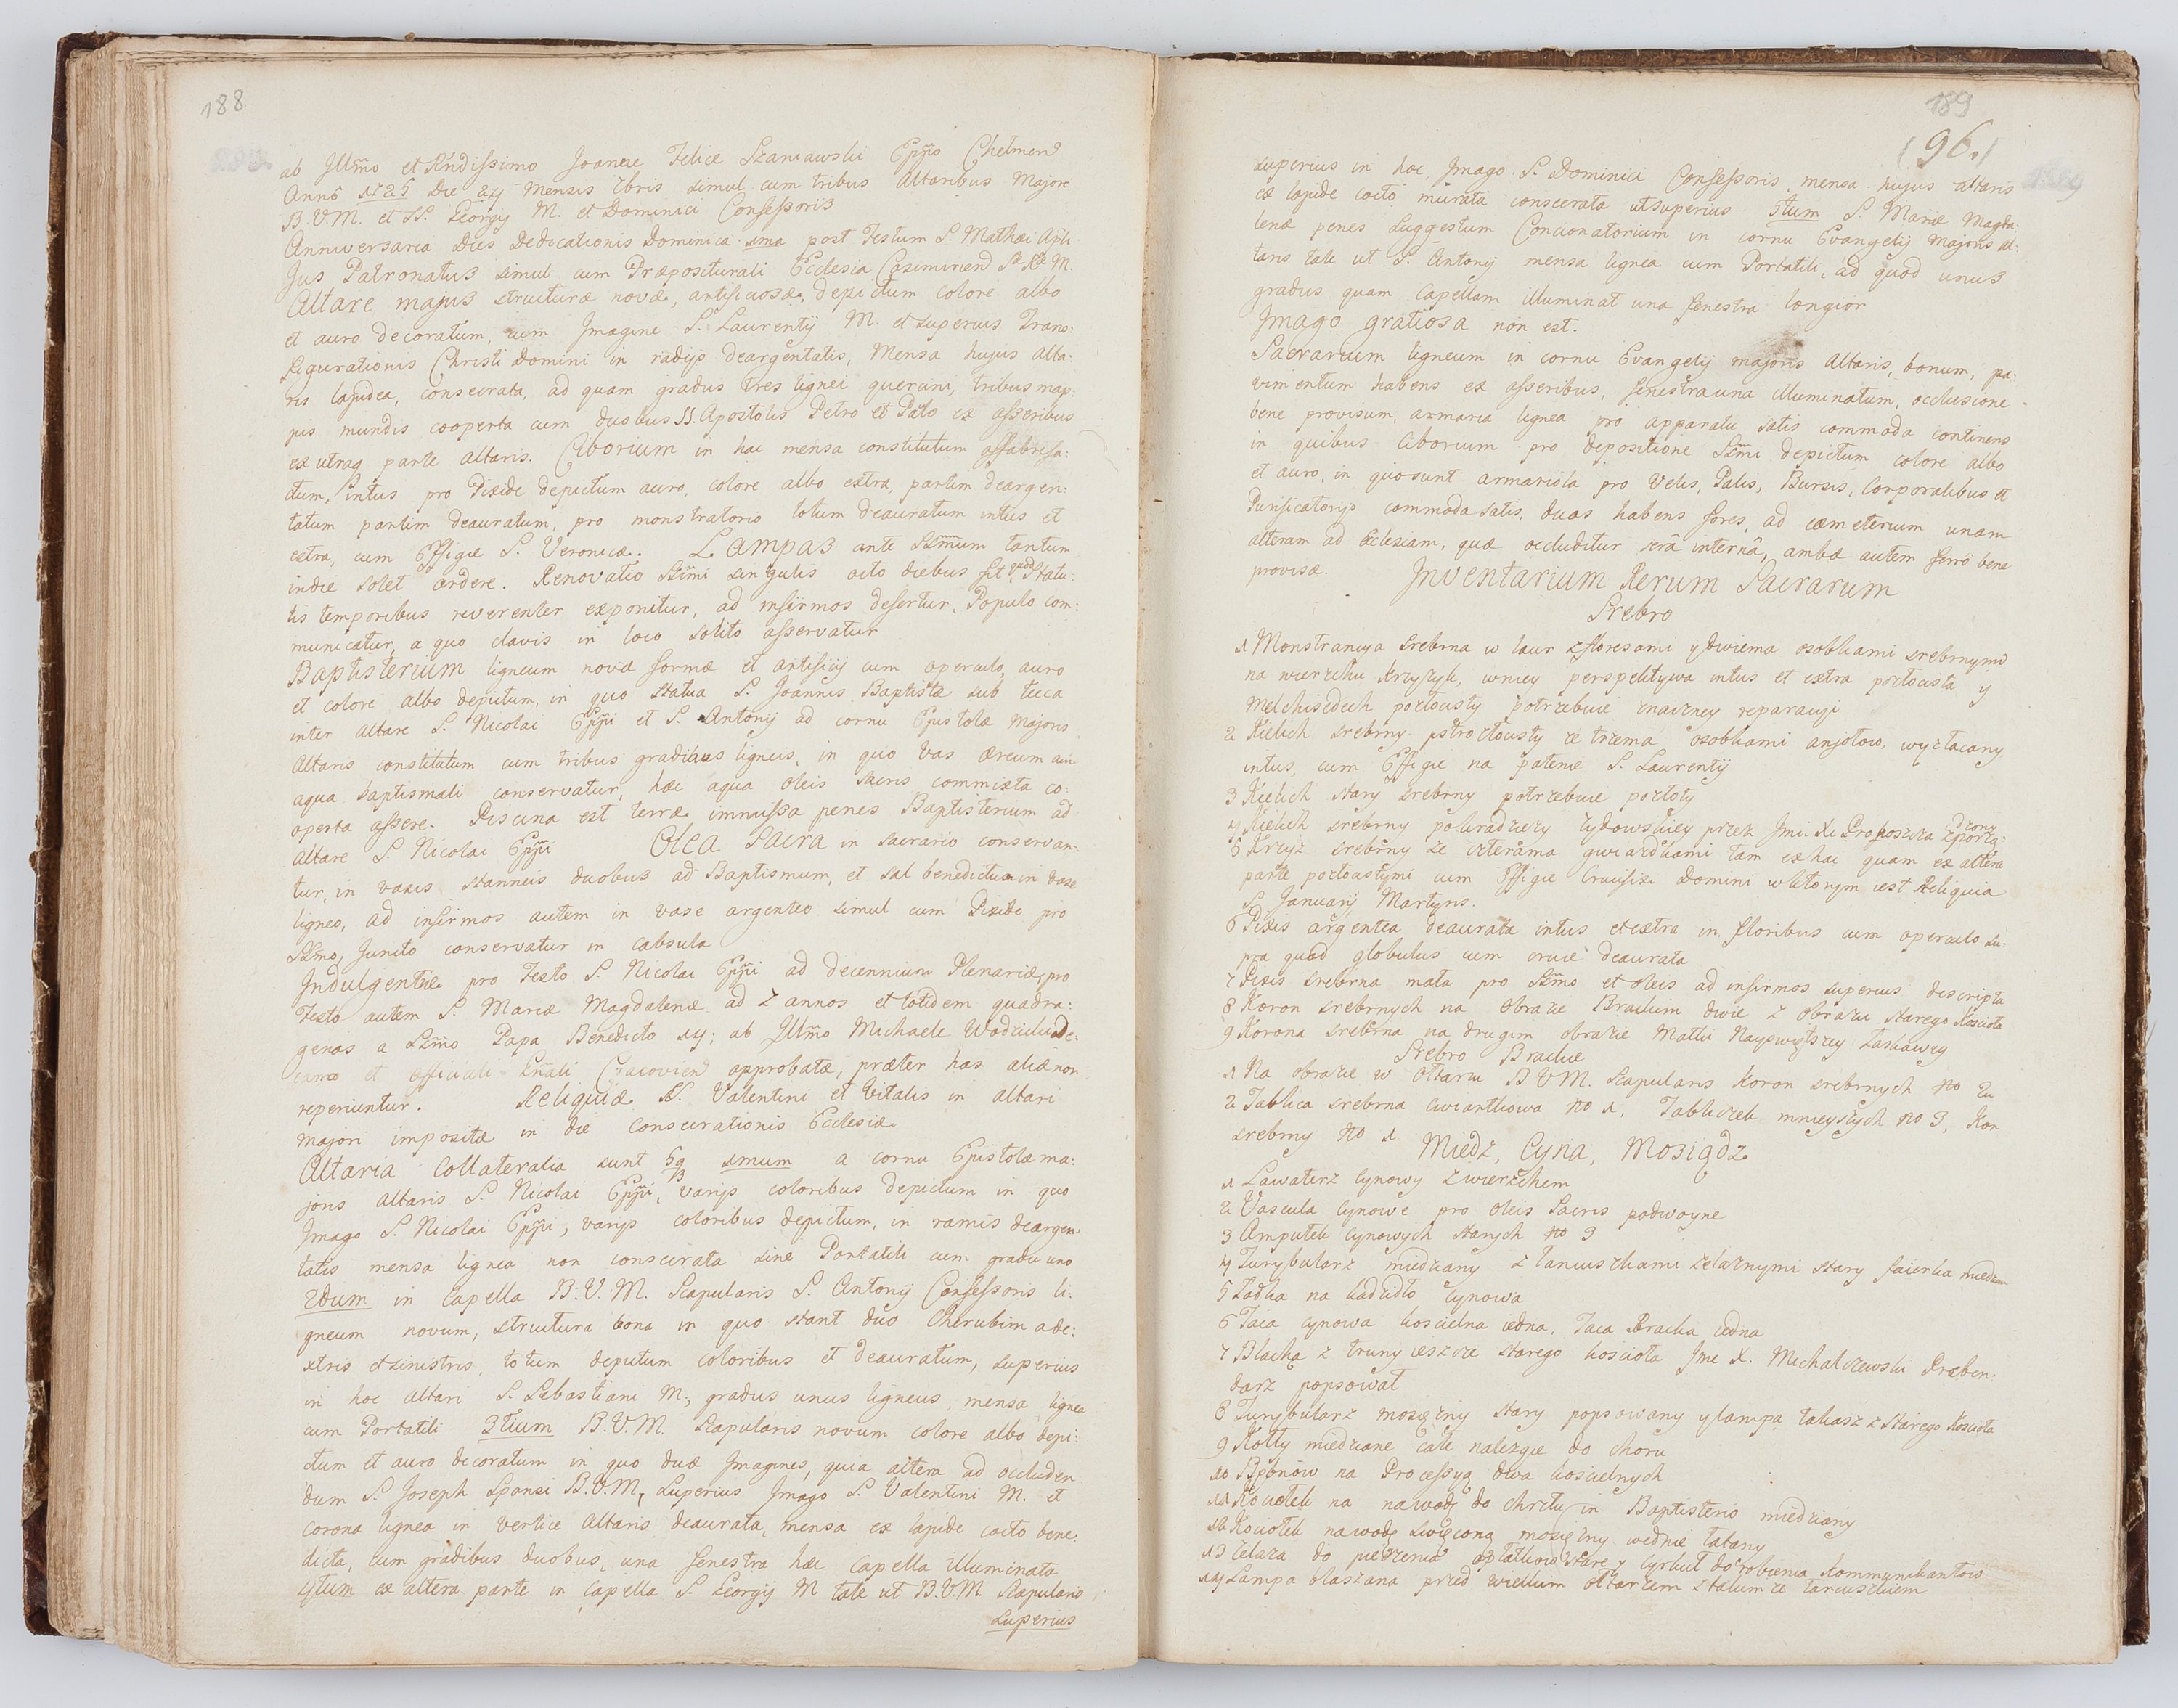 188
ab Illm̃o et Rndissimo Joanne Felice Szaniawski Epp̃o Chelmen
Annô 1725 Die 24 Mensis 7bris simul cum tribus Altaribus Majori
B.V.M. et SS. Georgy M. et Dominici Confessoris
Anniversaria Dies Dedicationis Dominica 1ma post Festum S. Mathæi Apli
Jus Patronatus simul cum Præpositurali Ecclesia Casimirien M.
Altare majus structuræ novæ, artificiosæ, depictum colore albo
et auro decoratum, cum Imagine S. Laurentij M. et superius Trans:
figurationis Christi Domini in radijs deargentatis, Mensa hujus Alta:
ris lapidea, consecrata, ad quam gradus tres lignei quercini, tribus map:
pis mundis cooperta cum duobus SS. Apostolis Petro et Pālo ex asseribus
ex utraq parte altaris. Ciborium in hac mensa constitutum affabrefa:
ctum, intus pro Pixide depictum auro, colore albo extra, partim deargen:
tatum partim deauratum, pro monstratorio totum deauratum intus et
extra, cum Effigie S. Veronicæ. Lampas ante SSm̃um tantum
indie solet ardere. Renovatio SSm̃i singulis octo diebus fit, quod Statu:
tis temporibus reverenter exponitur, ad infirmos defertur, Populo com:
municatur, a quo clavis in loco solito asservatur
Baptisterium ligneum novæ formæ et artificij cum operculo, auro
et colore albo depictum, in quo statua S. Joannis Baptistæ sub tecca
inter altare S. Nicolai Epp̃i et S. Antonij ad cornu Epistolæ Majoris
Altaris constitutum cum tribus gradibus ligneis, in quo vas æreum cum
aqua baptismali conservatur, hæc aqua Oleis sacris commixta co:
operta assere. Piscina est terræ immissa penes Baptisterium ad
altare S. Nicolai Epp̃i Olea Sacra in sacrario conservan:
tur, in vasis stanneis duobus ad Baptismum, et sal benedictum in vase
ligneo, ad infirmos autem in vase argenteo simul cum Pixide pro
SSm̃o, juncto conservatur in cabsula
Indulgentiæ pro Festo S. Nicolai Epp̃i ad decennium Plenariæ, pro
Festo autem S. Mariæ Magdalenæ ad 7 annos et totidem quadra:
genas a SSm̃o Papa Benedicto 14; ab Illm̃o Michaele Wodzicki De:
cano et officiali Gñali Cracovien approbatæ, præter has aliæ non
reperiuntur. Reliquiæ SS. Valentini et Vitalis in altari
majori impositæ in die consecrationis Ecclesiæ
Altaria Collateralia sunt 5q 1mum a cornu Epistolæ ma:
joris altaris S. Nicolai Epp̃i, varijs coloribus depictum in quo
Imago S. Nicolai Epp̃i, varijs coloribus depictum, in ramis deargen
tatis mensa lignea non consecrata sine Portatili cum gradu uno
2dum in Capella B.V.M. Scapularis S. Antonij Confessoris li:
gneum novum, structura bona in quo stant duo Cherubim a de:
xtris et sinistris, totum depictum coloribus et deauratum, superius
in hoc altari S. Sebastiani M., gradus unus ligneus, mensa lignea
cum Portatili 3tium B.V.M. Scapularis novum colore albo depi:
ctum et auro decoratum in quo duæ Imagines, quia altera ad occluden
dum S. Joseph Sponsi B.V.M, superius Imago S. Valentini M. et
corona lignea in vertice altaris deaurata, mensa ex lapide cocto bene:
dicta, cum gradibus duobus, una fenestra hæc Capella illuminata
4tum ex altera parte in Capella S. Georgij M tale ut B.V.M. Scapularis
superius
189
(96.)
superius in hoc Imago S. Dominici Confessoris, mensa hujus altaris
ex lapide cocto murata consecrata ut superius 5tum S. Mariæ Magda:
lenæ penes Suggestum Concionatorium in cornu Evangelij majoris al:
taris tale ut S. Antonij mensa lignea cum Portatili, ad quod unus
gradus quam Capellam illuminat una fenestra longior
Imago gratiosa non est.
Sacrarium ligneum in cornu Evangelij majoris Altaris, bonum, pa:
vimentum habens ex asseribus, fenestra una illuminatum, occlusione
bene provisum, armaria lignea pro apparatu satis commoda continens
in quibus Ciborium pro depositione SSm̃i depictum colore albo
et auro, in quo sunt armariola pro Velis, Palis, Bursis, Corporalibus et
Purificatorijs commoda satis, duas habens fores, ad cæmeterium unam
alteram ad Ecclesiam, quæ occluditur serâ internâ, ambæ autem ferrô bene
provisæ. Inventarium Rerum Sacrarum
Srebro
1 Monstrancya srebrna w laur z floresami y dwiema osobkami srebrnymi
na wierzchu krzyżyk, wniey perspektywa intus et extra pozłocista y
Melchisedech pozłocisty potrzebuie znaczney reparacyi
2 Kielich srebrny pstrozłocisty ze trzema osobkami anjołow, wyzłacany
intus, cum Effigie na patenie S. Laurentij
3 Kielich stary srebrny potrzebuie pozłoty
4 Kielich srebrny pokradzieży żydowskiey przez Jmci X. Proboszcza sporzą: dzony
5 Krzyż srebrny ze czterama gwiazdkami tam ex hac quam ex altera
parte pozłocistymi cum Effigie Crucifixi Domini w ktorym iest Reliquia
S. Januarij Martyris.
6 Pixis argentea deaurata intus et extra in floribus cum operculo su:
pra quod globulus cum cruce deaurata
7 Pixis srebrna mała pro SSm̃o et oleis ad infirmos superius descripta
8 Koron srebrnych na obrazie Brackim dwie z obrazu starego Kościoła
9 Korona srebrna na drugim obrazie Matki Nayswiętszey Łaskawey
Srebro Brackie
1 Na obrazie w Ołtarzu B V M. Scapularis koron srebrnych No 2
2 Tablica srebrna cwiartkowa No 1. Tabliczek mnieyszych No 3, Kon
srebrny No 1 Miedź, Cyna, Mosiądz
1 Lawaterz cynowy z wierzchem
2 Vascula cynowe pro oleis Sacris podwoyne
3 Ampułek cynowych starych No 3
4 Turybularz miedziany z łancuszkami żelaznymi stary faierka miedzian
5 Łodka na kadzidło cynowa
6 Taca cynowa koscielna iedna. Taca Bracka iedna
7 Blacha z truny ieszcze starego koscioła Jmc X. Michalczewski Præben:
darz popsował
8 Turybularz mosiężny stary popsowany y lampa takasz z starego Koscioła
9 Kotły miedziane całe należące do choru
10 Bębnow na Processyą dwa koscielnych
11 Kociołek na nawodę do chrztu in Baptisterio miedziany
12 Kociołek nawodę swięconą mosiężny wednie łatany
13 żelaza do pieczenia opłatkow stare y cyrkuł do robienia kommunikantow
14 Lampa blaszana przed wielkim ołtarzem z łancuszkiem